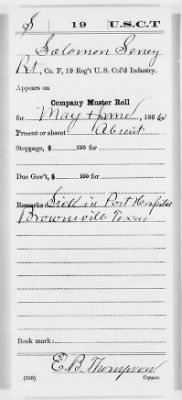 S 19 U.S.C.T
Solomon Seney
Pvt, Co. F, 19 Reg't U. S. Col'd Infantry.
Appears on
Company Muster Roll
for May & June, 1866
Present or absent Absent
Stoppage, $ 100 for
Due Gov't, $ 100 for
Remarks: Sick in Post Hospital
Brownsville Texas
Book mark:
E. B. Thompson
(358) Copyist.